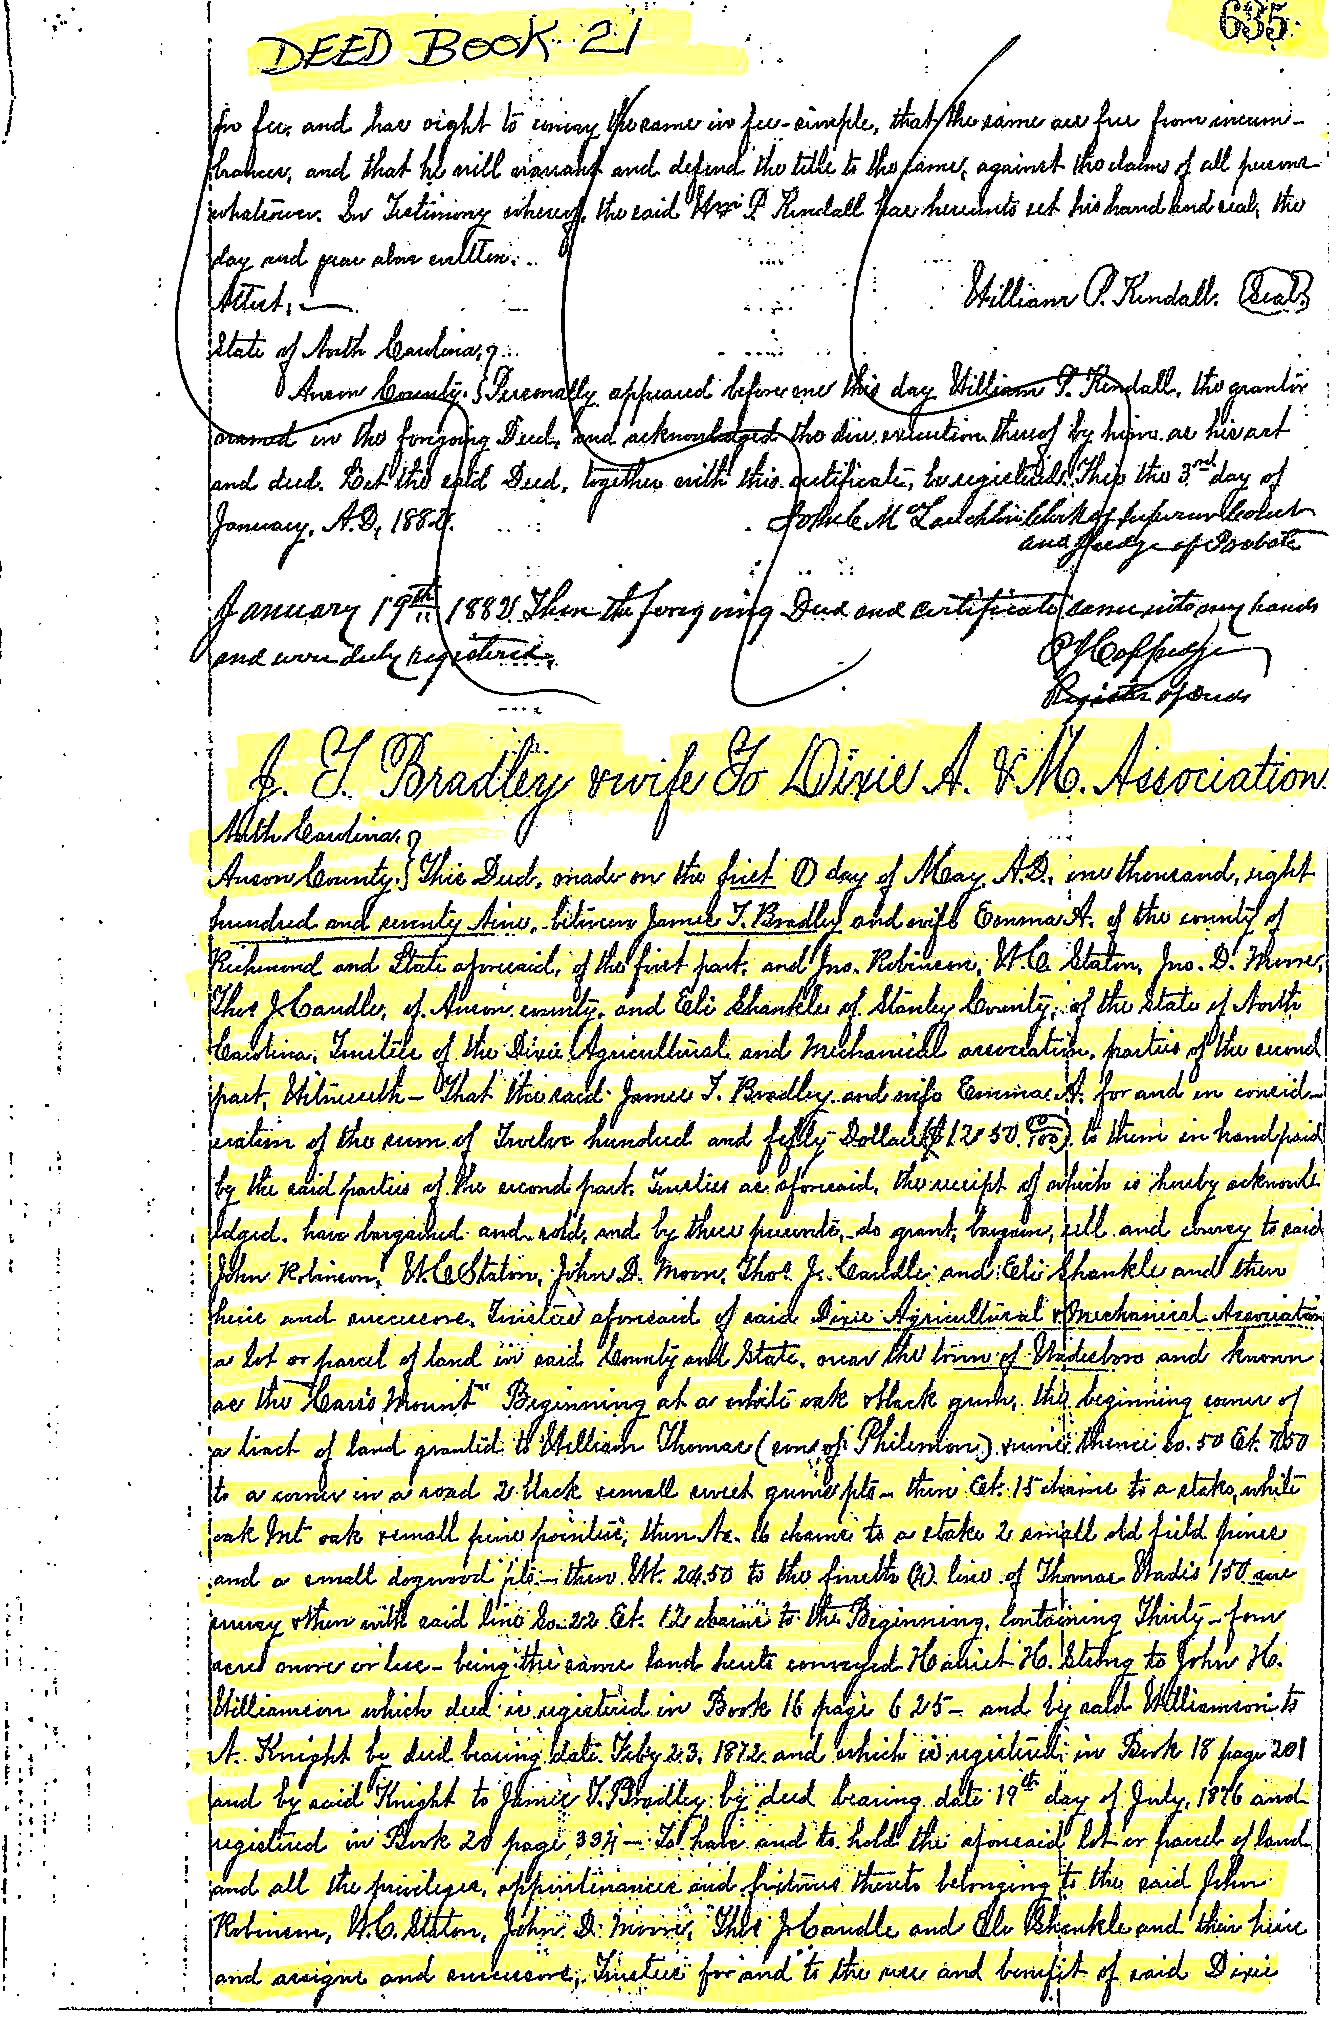 635
DEED BOOK 21
in fee, and has right to convey the same in fee-simple, that the same are free from incum-
brances, and that he will warrant and defend the title to the same, against the claims of all persons
whatsoever. In Testimony whereof, the said Wm P. Kendall has hereunto set his hand and seal, the
day and year above written.
Attest, William P. Kendall. (Seal)
State of North Carolina,
Anson County. } Personally appeared before me this day William P. Kendall, the grantor
named in the foregoing Deed, and acknowledged the due execution thereof by him as his act
and deed. Let the said Deed, together with this certificate, be registered. This the 3rd day of
January, A.D. 1882. John C McLauchlin Clerk of Superior Court
and Judge of Probate
January 19th 1882. Then the foregoing Deed and certificate came into my hands
and were duly registered.
Register of Deeds
J. T. Bradley & wife To Dixie A. & M. Association.
North Carolina,
Anson County. } This Deed, made on the first (1) day of May A.D. one thousand, eight
hundred and seventy nine, between James T. Bradley and wife Emma A. of the county of
Richmond and State aforesaid, of the first part, and Jno. Robinson, W. C. Staton, Jno. D. Moore,
Thos J. Caudle, of Anson county, and Eli Shankle of Stanley County, of the State of North
Carolina, Trustees of the Dixie Agricultural and Mechanical association, parties of the second
part, Witnesseth - That the said James T. Bradley and wife Emma A. for and in consid-
eration of the sum of Twelve hundred and fifty Dollars ($1250.00/100) to them in hand paid
by the said parties of the second part, Trustees as aforesaid, the receipt of which is hereby acknowl
edged, have bargained and sold, and by these presents, do grant, bargain, sell and convey to said
John Robinson, W. C. Staton, John D. Moore, Thos. J. Caudle and Eli Shankle and their
heirs and successors, Trustees aforesaid of said Dixie Agricultural & Mechanical Association
a lot or parcel of land in said County and State, near the town of Wadesboro and known
as the "Carr's Mount" Beginning at a white oak & black gum, the beginning corner of
a tract of land granted to William Thomas (son of Philemon) runs thence So. 50 Et. 7.50
to a corner in a road 2 black & small sweet gums pts - then Et. 15 chains to a stake, white
oak & small pine pointers, then No. 16 chains to a stake 2 small old field pines
and a small dogwood pts - then Wt. 24.50 to the fourth (4) line of Thomas Wades 150 acre
survey & then with said line So. 22 Et. 12 chains to the Beginning, containing Thirty-four
acres more or less - being the same land hereto conveyed Harriet H. to John H.
Williamson which deed is registered in Book 16 page 625 - and by said Williamson to
A. Knight by deed bearing date Feby 23, 1872 and which is registered in Book 18 page 201
and by said Knight to James T. Bradley by deed bearing date 19th day of July, 1876 and
registered in Book 20 page 334 - To have and to hold the aforesaid lot or parcel of land
and all the privileges, appurtenances and fixtures thereto belonging to the said John
Robinson, W. C. Staton, John D. Moore, Thos J. Caudle and Eli Shankle and their heirs
and assigns and successors, Trustees for and to the use and benefit of said Dixie